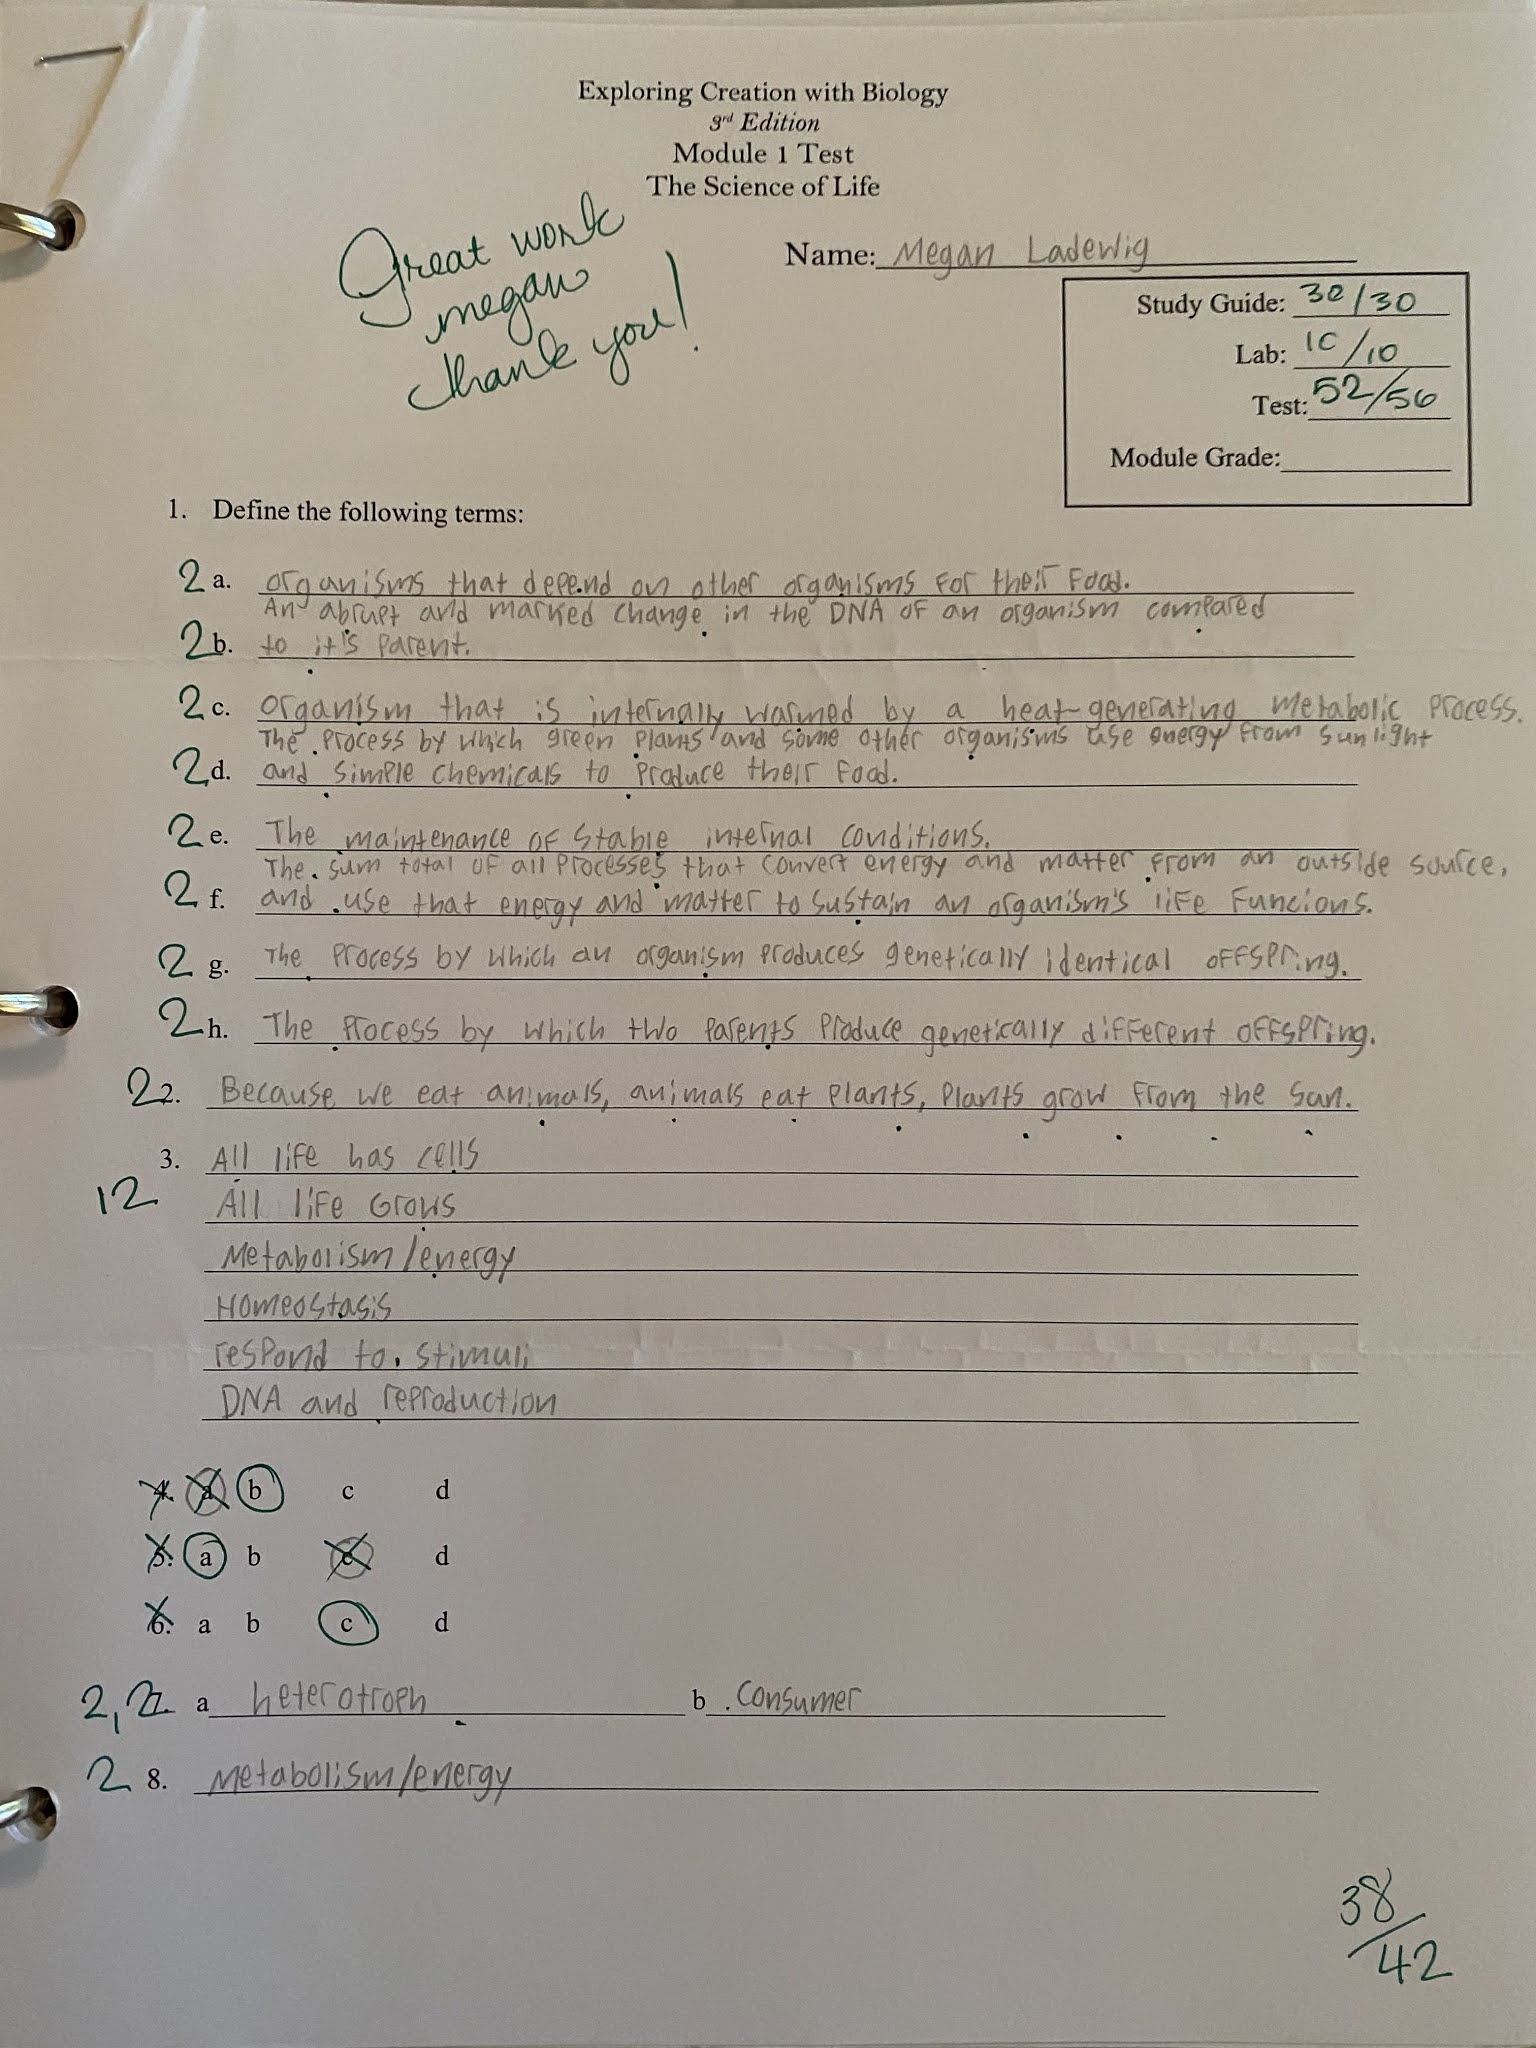 Exploring Creation with Biology
3rd Edition
Module 1 Test
The Science of Life
Great work
megan
thank you!
Name: Megan Ladewig
Study Guide: 30/30
Lab: 10/10
Test: 52/56
Module Grade:
1. Define the following terms:
2 a. organisms that depend on other organisms for their food.
An abrupt and marked change in the DNA of an organism compared
2 b. to it's parent.
2 c. organism that is internally warmed by a heat-generating metabolic process.
The process by which green plants and some other organisms use energy from sunlight
2 d. and simple chemicals to produce their food.
2 e. The maintenance of stable internal conditions.
The sum total of all processes that convert energy and matter from an outside source,
2 f. and use that energy and matter to sustain an organism's life funcions.
2 g. The process by which an organism produces genetically identical offspring.
2 h. The process by which two parents produce genetically different offspring.
2 2. Because we eat animals, animals eat plants, plants grow from the sun.
3. All life has cells
12 All life Grows
Metabolism/energy
Homeostasis
respond to stimuli
DNA and reproduction
4. a b c d
5. a b c d
6. a b c d
2,2 7. a heterotroph b. consumer
2 8. Metabolism/energy
38/42